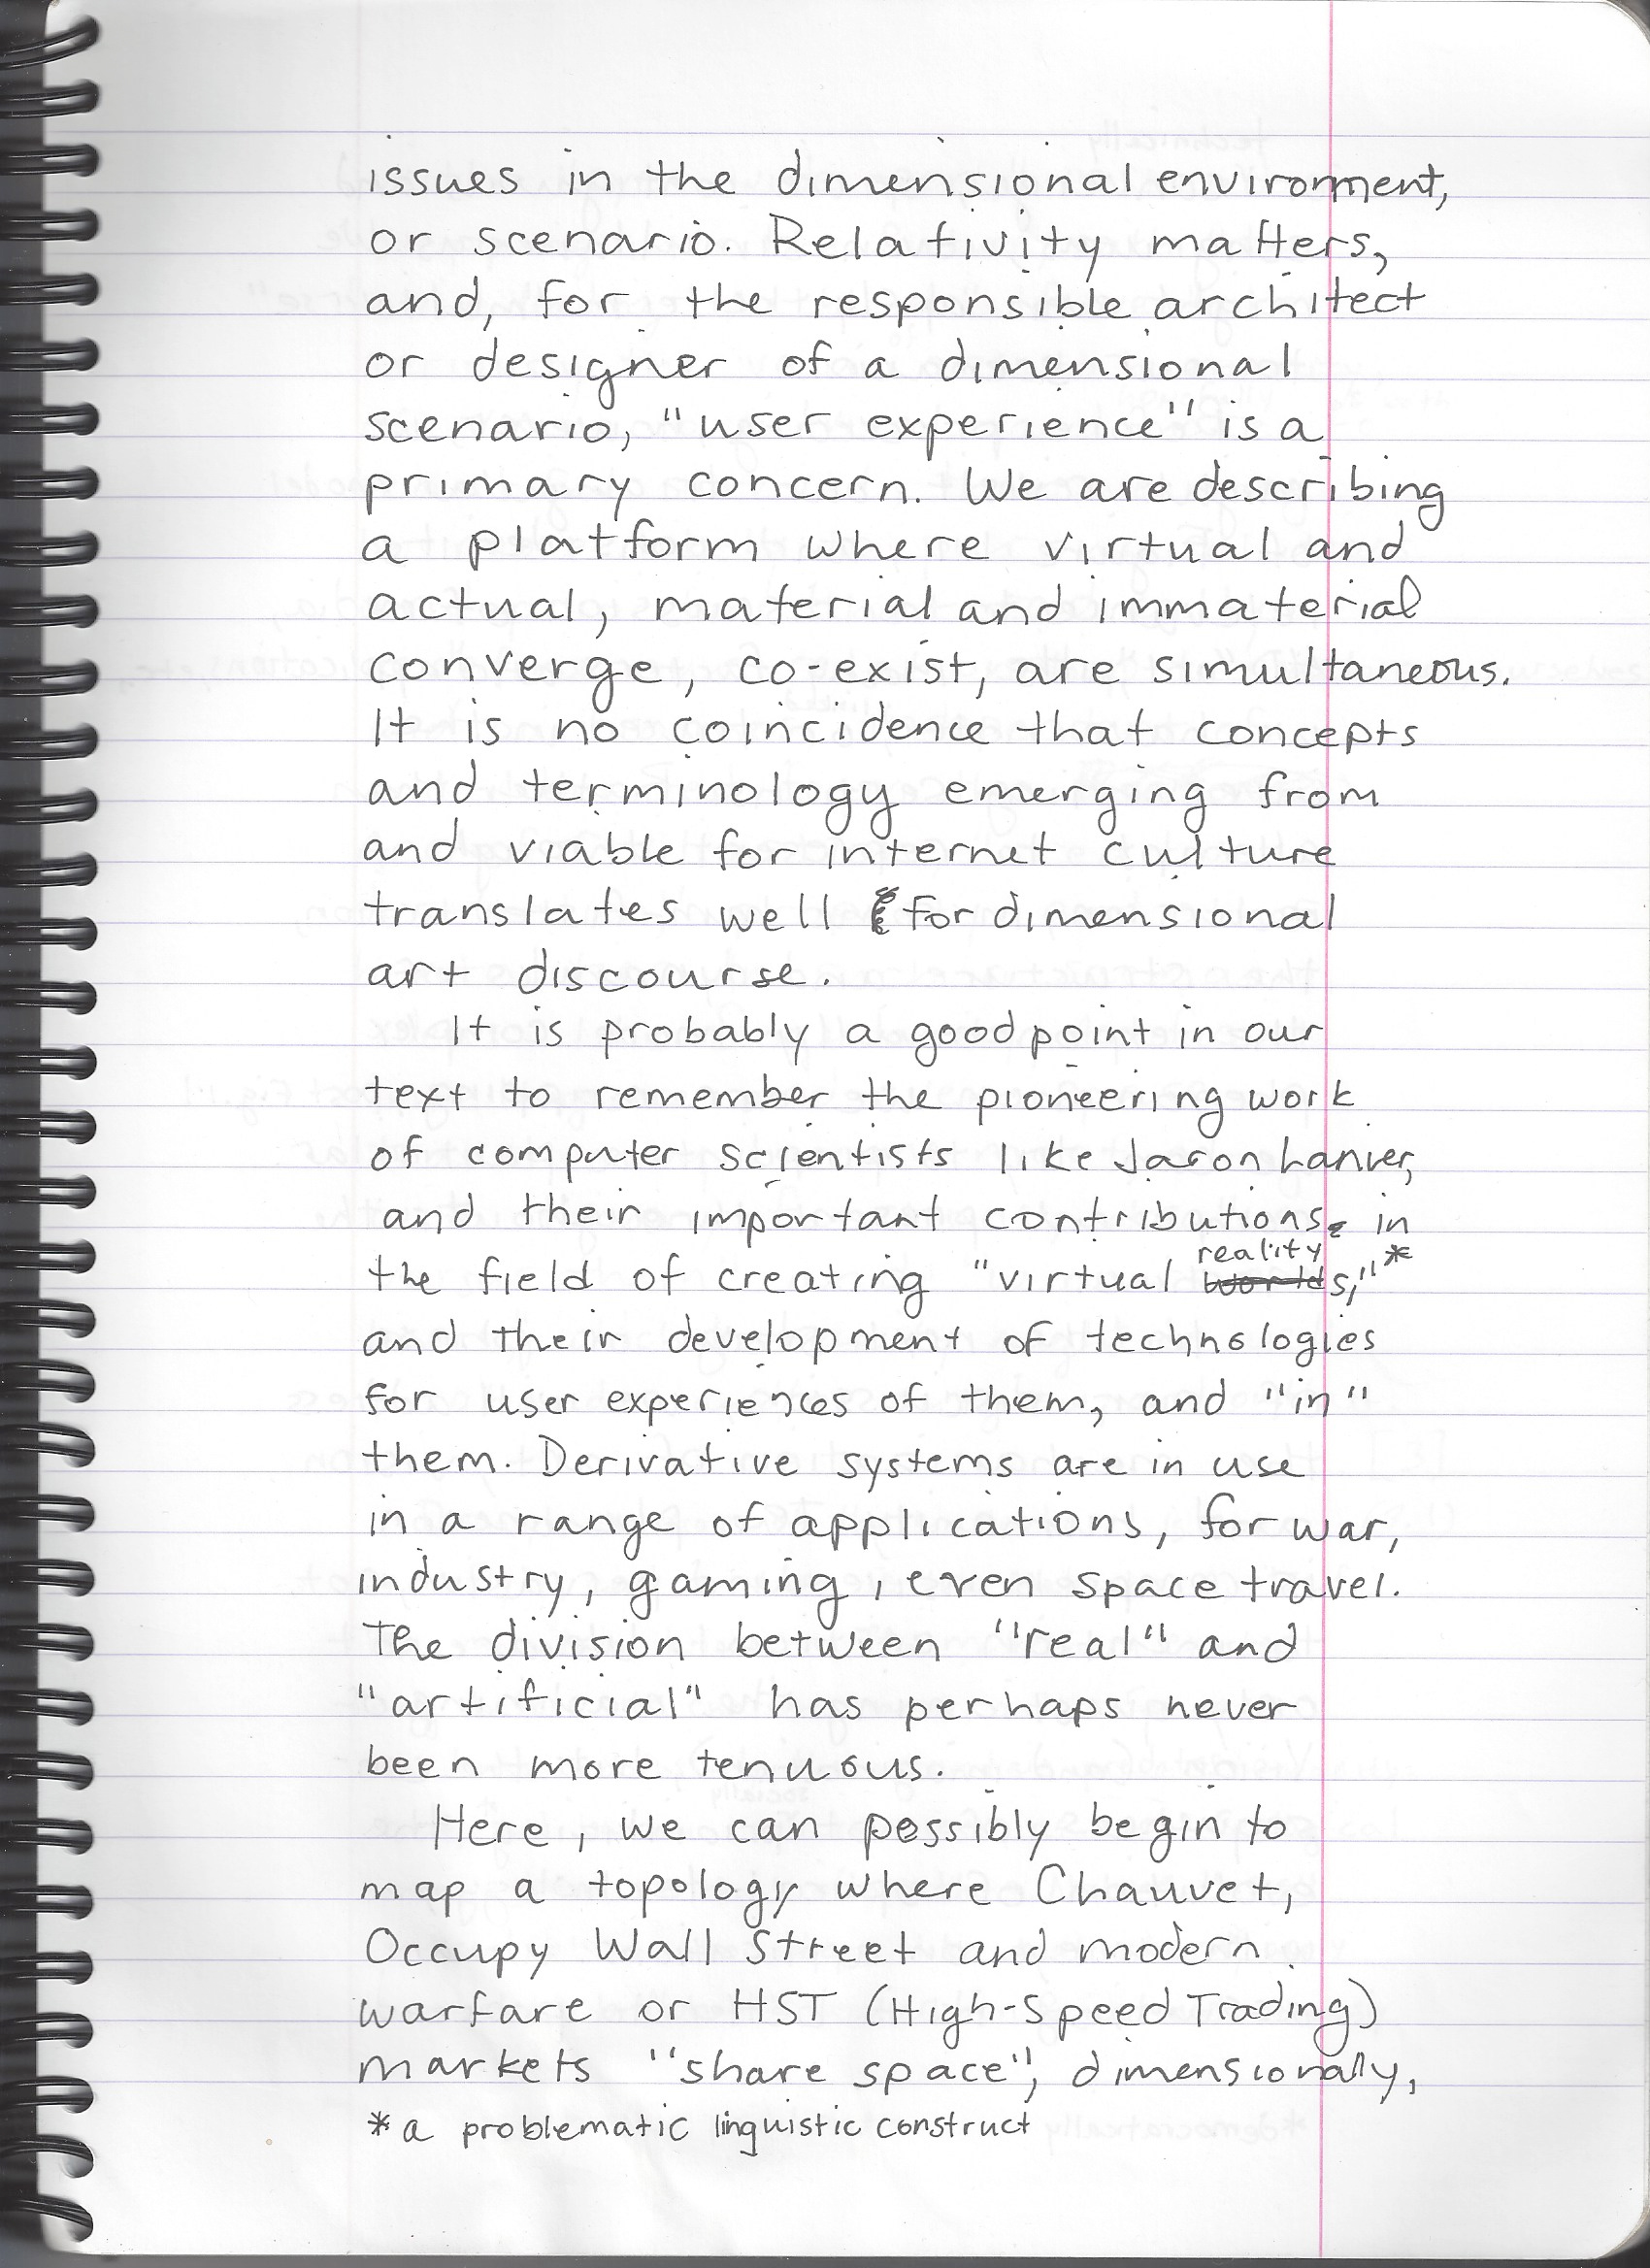 issues in the dimensional environment,
or scenario. Relativity matters,
and, for the responsible architect
or designer of a dimensional
scenario, "user experience" is a
primary concern. We are describing
a platform where virtual and
actual, material and immaterial
converge, co-exist, are simultaneous.
It is no coincidence that concepts
and terminology emerging from
and viable for internet culture
translates well for dimensional
art discourse.
It is probably a good point in our
text to remember the pioneering work
of computer scientists like Jaron Lanier,
and their important contributions in
reality
the field of creating "virtual worlds,"*
and their development of technologies
for user experiences of them, and "in"
them. Derivative systems are in use
in a range of applications, for war,
industry, gaming, even space travel.
The division between "real" and
"artificial" has perhaps never
been more tenuous.
Here, we can possibly begin to
map a topology where Chauvet,
Occupy Wall Street and modern
warfare or HST (High-Speed Trading)
markets "share space", dimensionally,
*a problematic linguistic construct